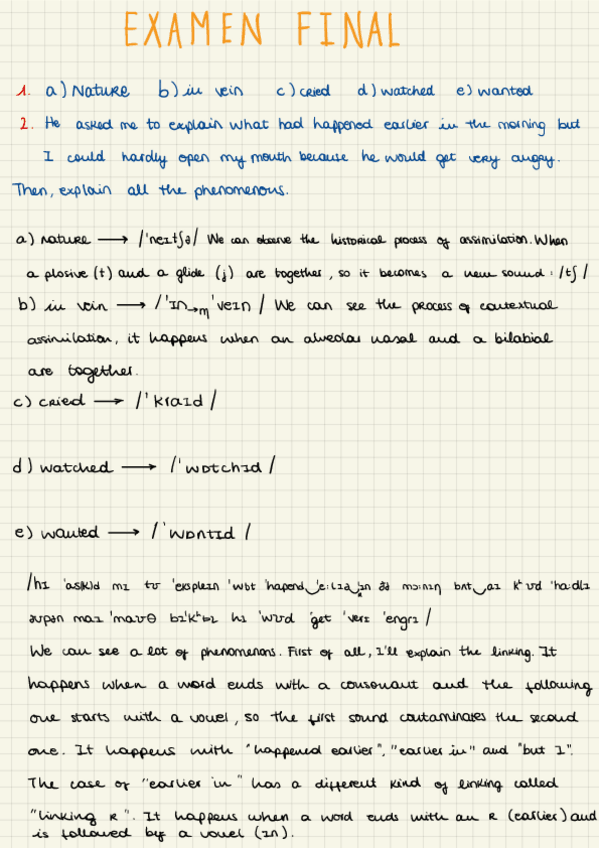 EXAMEN FINAL
1. a) Nature b) in vein c) cried d) watched e) wanted
2. He asked me to explain what had happened earlier in the morning but
I could hardly open my mouth because he would get very angry.
Then, explain all the phenomenons.
a) nature → /ˈneɪtʃə/ We can observe the historical process of assimilation. When
a plosive (t) and a glide (j) are together, so it becomes a new sound: /tʃ/
b) in vein → /ˈɪn→ɱ ˈveɪn/ We can see the process of contextual
assimilation, it happens when an alveolar nasal and a bilabial
are together.
c) cried → /ˈkraɪd/
d) watched → /ˈwɒtchɪd/
e) wanted → /ˈwɒntɪd/
/hɪ mɪ tʊ ˈeksplein ˈwɒt ˈhapend
maɪ ˈmaʊθ hɪ ˈwʊd ˈget ˈverɪ ˈengrɪ/
We can see a lot of phenomenons. First of all, I'll explain the linking. It
happens when a word ends with a consonant and the following
one starts with a vowel, so the first sound contaminates the second
one. It happens with "happened earlier", "earlier in" and "but I".
The case of "earlier in" has a different kind of linking called
"linking R". It happens when a word ends with an R (earlier) and
is followed by a vowel (ɪn).